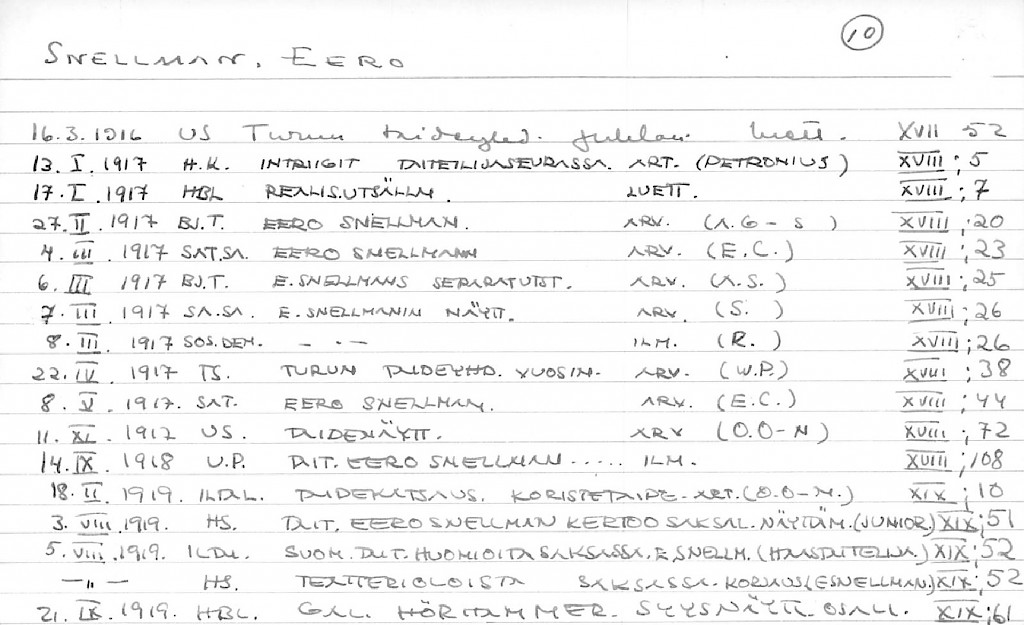 10
SNELLMAN, EERO
16.3.1916 US Turun taideyhd. juhlan. luett. XVII 52
13. I. 1917 H.K. INTRIIGIT TAITEILIJASEURASSA. ART. (PETRONIUS) XVIII; 5
17. I. 1917 HBL REALIS.UTSÄLLN. LUETT. XVIII; 7
27. II. 1917 BJ.T. EERO SNELLMAN. ARV. (A.G-S) XVIII; 20
4. III 1917 SAT.SA. EERO SNELLMANN ARV. (E.C.) XVIII; 23
6. III 1917 BJ.T. E.SNELLMANS SEPARATUTST. ARV. (A.S.) XVIII; 25
7. III 1917 SA.SA. E.SNELLMANIN NÄYTT. ARV. (S.) XVIII; 26
8. III. 1917 SOS.DEM. - . - ILM. (R.) XVIII; 26
22. IV. 1917 TS. TURUN TAIDEYHD. VUOSIN. ARV. (W.P.) XVIII; 38
8. V. 1917. SAT. EERO SNELLMAN. ARV. (E.C.) XVIII; 44
11. XI. 1917 US. TAIDENÄYTT. ARV (O.O-N) XVIII; 72
14. IX. 1918 U.P. TAIT. EERO SNELLMAN ..... ILM. XVIII; 108
18. II. 1919. ILTAL. TAIDEKATSAUS. KORISTETAIDE. ART.(O.O-N.) XIX; 10
3. VIII.1919. HS. TAIT. EERO SNELLMAN KERTOO SAKSAL. NÄYTÄM.(JUNIOR.) XIX; 51
5. VIII.1919. ILTAL. SUOM. TAIT. HUOMIOITA SAKSASSA. E.SNELLM. (HAASTATTELUA.) XIX; 52
— " — HS. TEATTERIOLOISTA SAKSASSA. KORJAUS(E.SNELLMAN.) XIX; 52
21. IX. 1919. HBL. GAL. HÖRHAMMER. SYYSNÄYTT. OSALL. XIX; 61